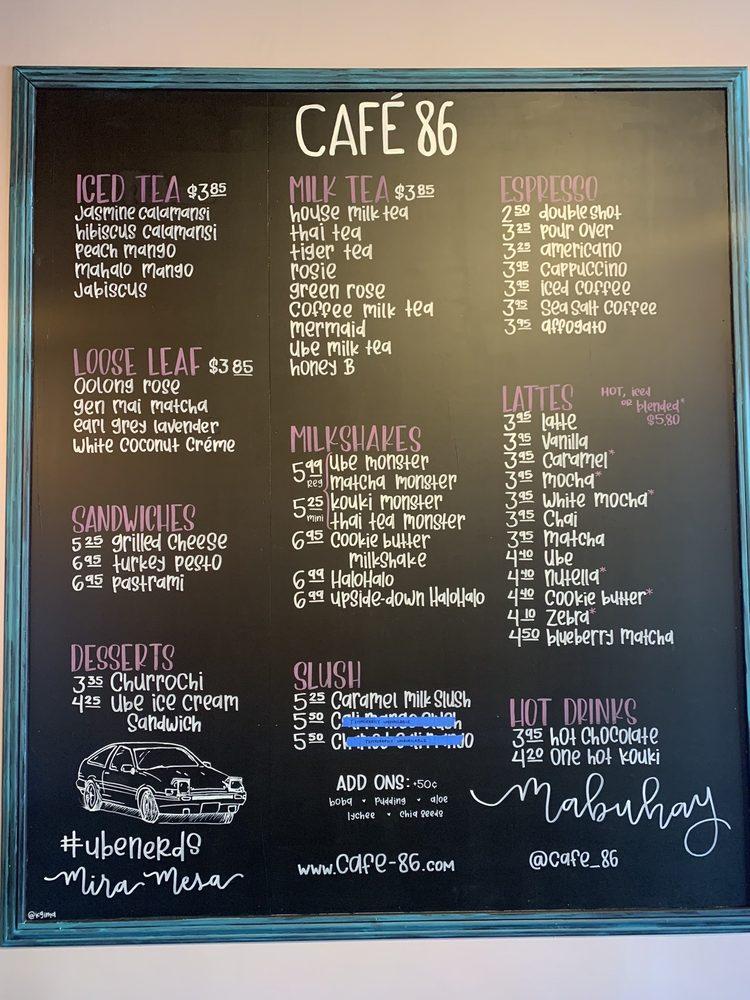 CAFÉ 86
ICED TEA $3.85
Jasmine calamansi
hibiscus calamansi
peach mango
mahalo mango
Jabiscus
LOOSE LEAF $3.85
Oolong rose
gen mai matcha
earl grey lavender
white coconut créme
SANDWICHES
5.25 grilled cheese
6.95 turkey pesto
6.95 pastrami
DESSERTS
3.35 Churrochi
4.25 Ube ice cream
Sandwich
#ubenerds
Mira Mesa
@kgima
MILK TEA $3.85
house milk tea
thai tea
tiger tea
rosie
green rose
Coffee milk tea
mermaid
Ube milk tea
honey B
MILKSHAKES
5.99 reg
5.25 mini
Ube monster
matcha monster
kouki monster
thai tea monster
6.95 Cookie butter
milkshake
6.99 HaloHalo
6.99 upside-down HaloHalo
SLUSH
5.25 Caramel Milk Slush
5.50
TEMPORARILY UNAVAILABLE
5.50
TEMPORARILY UNAVAILABLE
ADD ONS: +50¢
boba • pudding • aloe
lychee • chia seeds
www.Cafe-86.com
ESPRESSO
2.50 double shot
3.25 pour over
3.25 americano
3.95 Cappuccino
3.95 iced coffee
3.95 Sea Salt Coffee
3.95 affogato
LATTES
HOT, iced
or blended*
$5.80
3.95 latte
3.95 Vanilla
3.95 Caramel*
3.95 mocha*
3.95 white mocha*
3.95 Chai
3.95 matcha
4.40 Ube
4.40 nutella*
4.40 Cookie butter*
4.10 Zebra*
4.50 blueberry matcha
HOT DRINKS
3.95 hot chocolate
4.20 One hot kouki
Mabuhay
@cafe_86